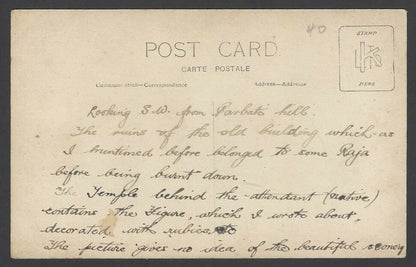 40
POST CARD
CARTE POSTALE
STAMP
HERE
Communication—Correspondence
Address—Addresse
Looking S.W. from Parbati hill.
The ruins of the old building which as
I mentioned before belonged to some Raja
before being burnt down.
The Temple behind the attendant (native)
contains the Figure, which I wrote about,
decorated with rubies etc
The picture gives no idea of the beautiful scenery